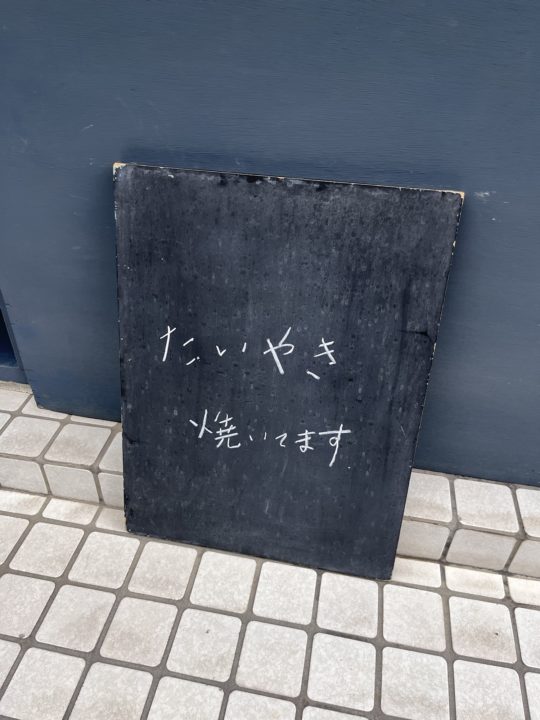 たいやき
焼いてます